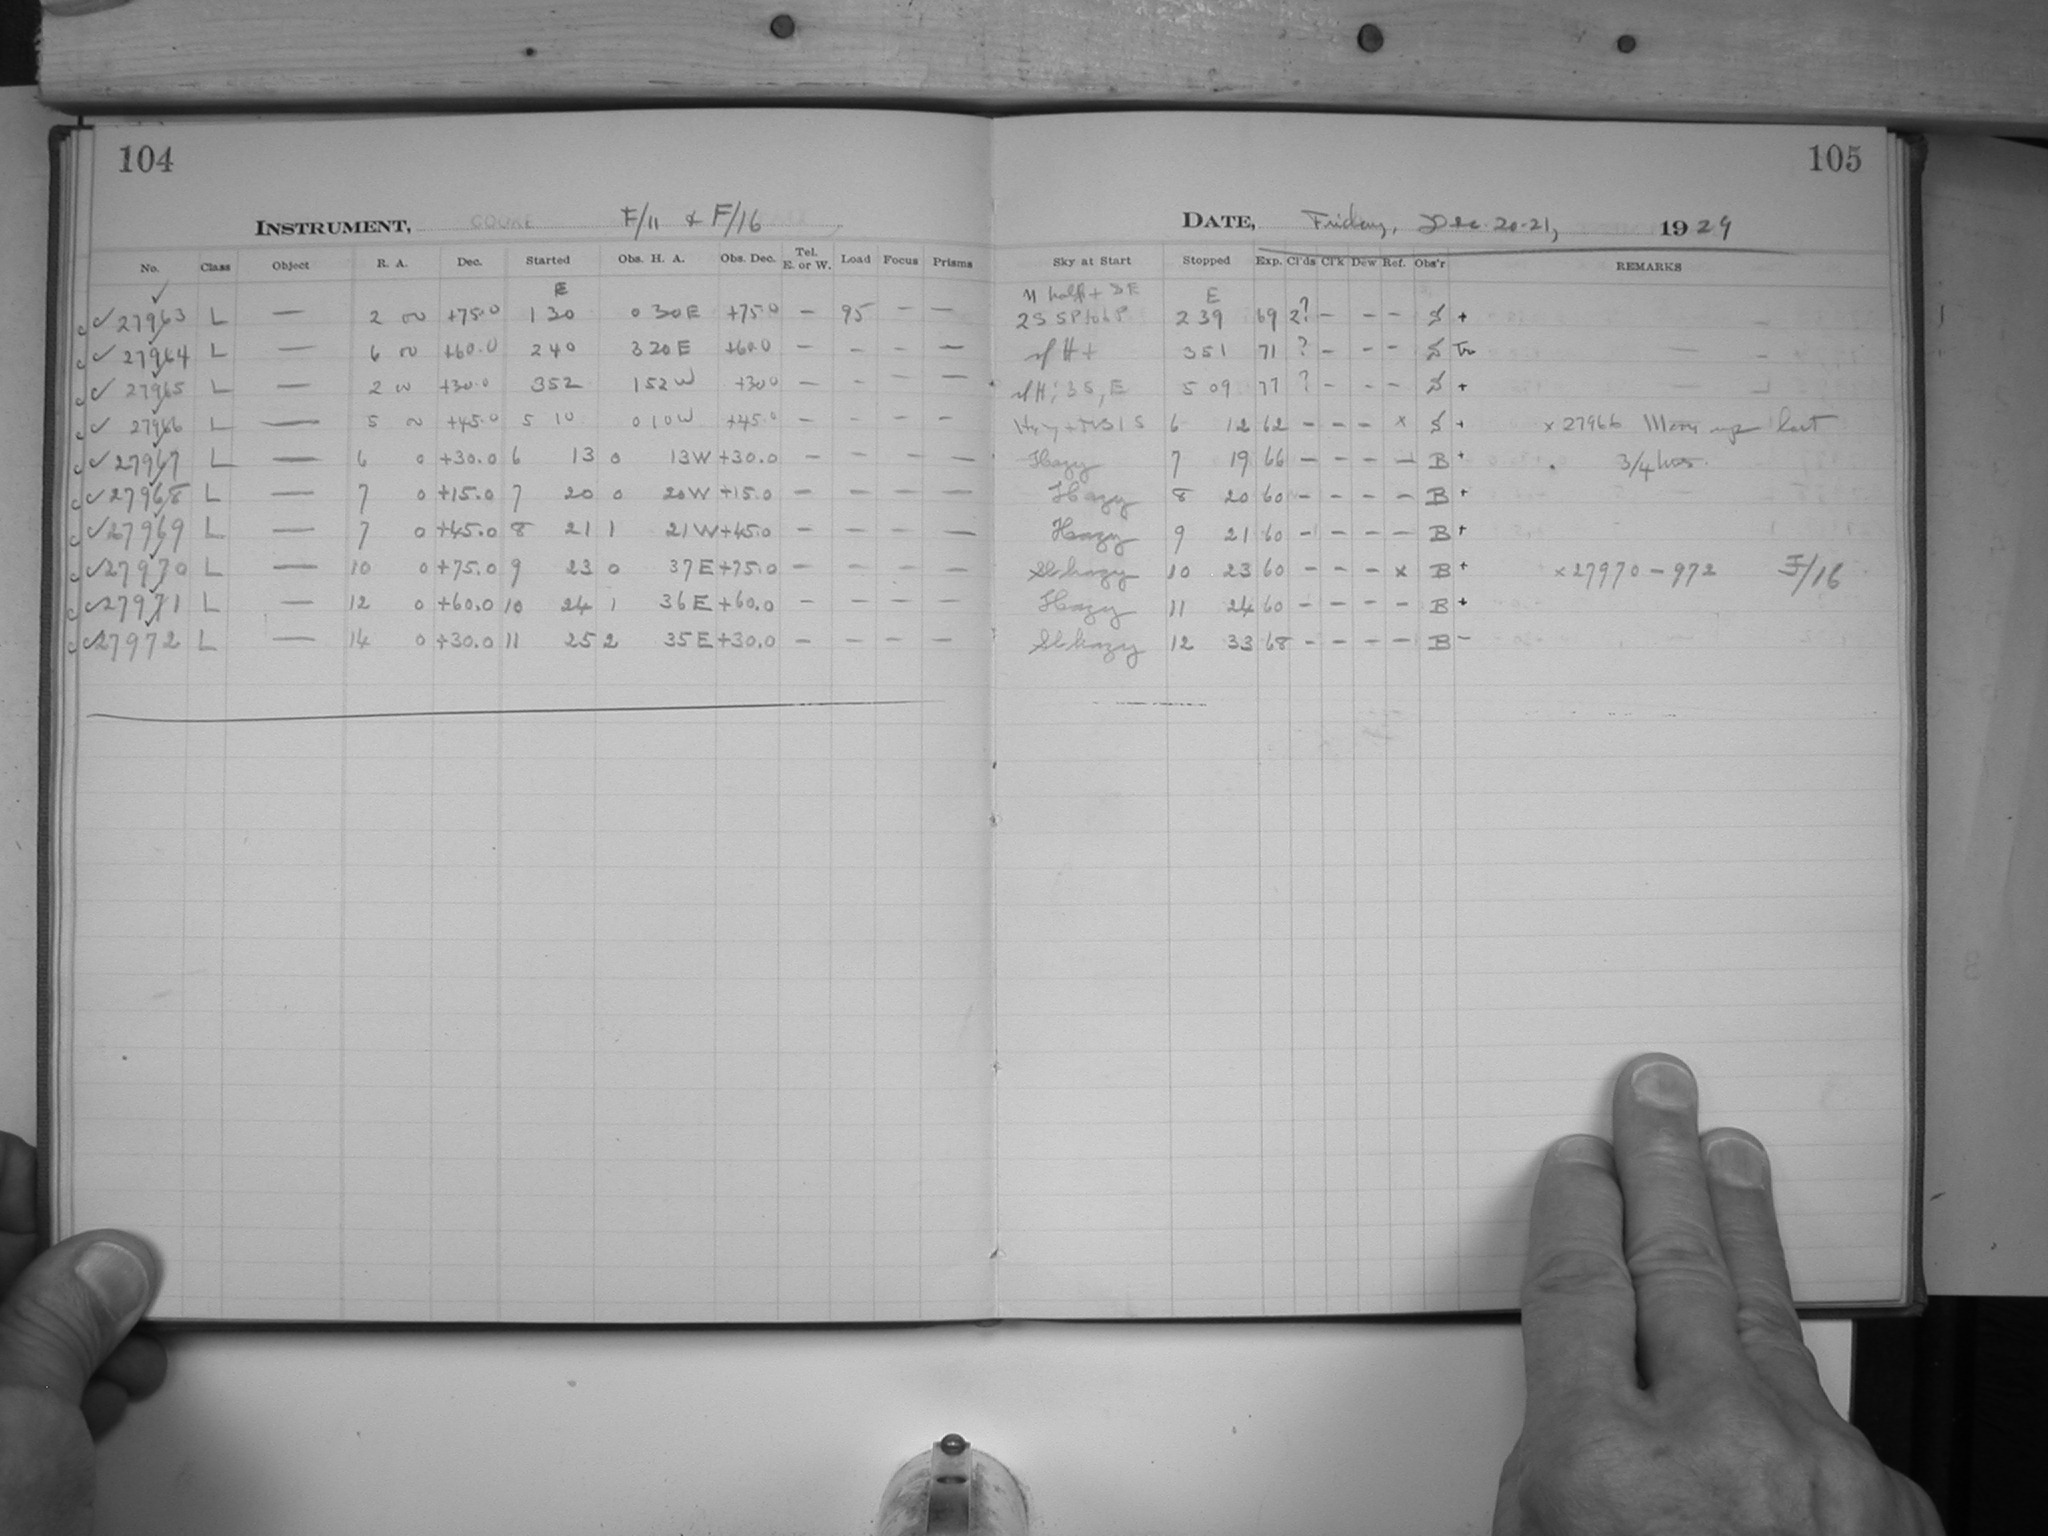 104
105
INSTRUMENT, COOKE F/11 & F/16
DATE, Friday, Dec 20-21, 1929
No. Class Object R. A. Dec. Started Obs. H. A. Obs. Dec. Tel. E. or W. Load Focus Prisms Sky at Start Stopped Exp. Cl'ds Cl'k Dew Ref. Obs'r REMARKS
E E
✓ 27963 L — 2 +75.0 1 30 0 30 E +75.0 – 95 – – 2 39 69 2? – – – S +
✓ 27964 L — 6 +60.0 2 40 3 20 E +60.0 – – – – H + 3 51 71 ? – – – S
✓ 27965 L — 2 +30.0 3 52 1 52 W +30.0 – – – – H; 3S, E 5 09 77 ? – – – S +
✓ 27966 L — 5 +45.0 5 10 0 10 W +45.0 – – – – 6 12 62 – – – x S + x 27966 Moon up last
✓ 27967 L — 6 0 +30.0 6 13 0 13 W +30.0 – – – – Hazy 7 19 66 – – – – B + 3/4 hrs.
✓ 27968 L — 7 0 +15.0 7 20 0 20 W +15.0 – – – – Hazy 8 20 60 – – – – B +
✓ 27969 L — 7 0 +45.0 8 21 1 21 W +45.0 – – – – Hazy 9 21 60 – – – – B +
✓ 27970 L — 10 0 +75.0 9 23 0 37 E +75.0 – – – – Sl hazy 10 23 60 – – – x B + x 27970 – 972 F/16
✓ 27971 L — 12 0 +60.0 10 24 1 36 E +60.0 – – – – Hazy 11 24 60 – – – – B +
✓ 27972 L — 14 0 +30.0 11 25 2 35 E +30.0 – – – – Sl hazy 12 33 68 – – – – B –